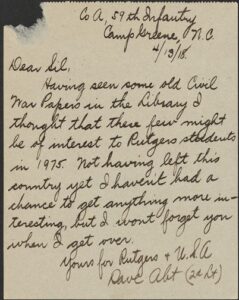 Co A, 59th Infantry
Camp Greene, N.C
4/13/18.
Dear Sil,
Having seen some old Civil
War Papers in the Library I
thought that these few might
be of interest to Rutgers students
in 1975. Not having left this
country yet I haven't had a
chance to get anything more in-
teresting, but I wont forget you
when I get over.
Yours for Rutgers & U.S.A
Dave Abt (2d Lt)